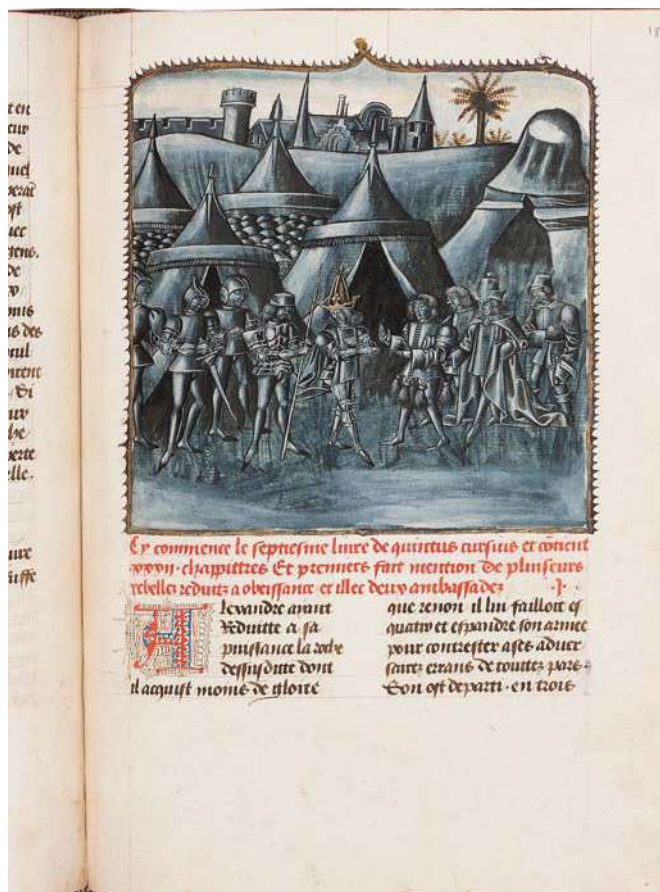 t en
eur
de
uel
perae
ost
uec
gens.
de
vy
onis
us des
orul
irent
. Si
aux
he
perte
elle.
uure
suffe
18
Cy commence le septiesme liure de quintus cursius et cõtient
xxxvij. chappittres Et premiers fait mention de pluiseurs
rebellez reduitz a obeissance et illec deux ambassadez .j.
Alexandre ayant
Reduitte a sa
puissance la roche
dessusditte dont
il acquist moins de gloire
que renon il lui failloit es
quatir et espandre son armee
pour contrester a ses aduer
saires errans de touttez pars.
Son ost departi. en trois